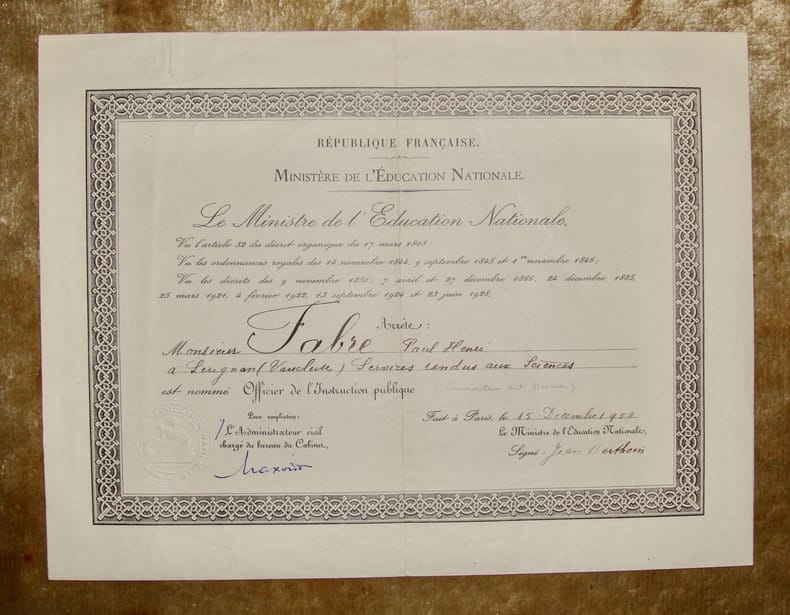 RÉPUBLIQUE FRANÇAISE.
MINISTÈRE DE L'ÉDUCATION NATIONALE.
Le Ministre de l'Education Nationale,
Vu l'article 32 du décret organique du 17 mars 1808;
Vu les ordonnances royales des 14 novembre 1844, 9 septembre 1845 et 1er novembre 1846;
Vu les décrets des 9 novembre 1850; 7 avril et 27 décembre 1866, 24 décembre 1885,
25 mars 1921, 4 février 1922, 13 septembre 1924 et 23 juin 1928,
Arrête :
Monsieur Fabre Paul Henri
à Serignan (Vaucluse) Services rendus aux Sciences
est nommé Officier de l'Instruction publique
Pour ampliation:
L'Administrateur civil
chargé du bureau du Cabinet,
Fait à Paris, le 15 Décembre 1954
Le Ministre de l'Education Nationale,
Signé : Jean Berthoin